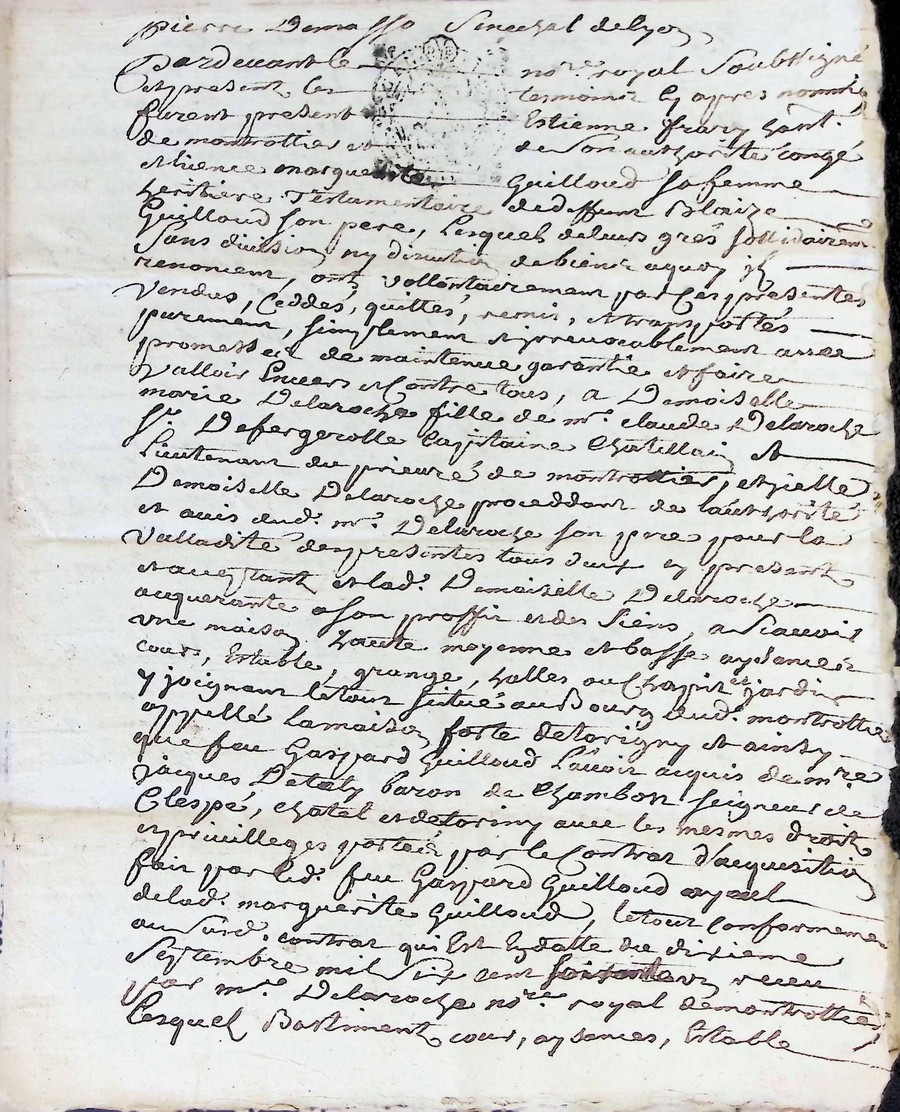 pierre Demasso Senechal de lyon
Pardevant le no.re royal Soubsigné
et present les temoins cy apres nommés
furent present Estienne frary hant
de montrottier et de Son authorité congé
et licence marguerite Guilloud sa femme
heritiere Testamentaire de deffunt Blaize
Guilloud son pere, Lesquels de leurs grés sollidairement
Sans division ny discution de biens a quoy ils
renoncent, ont vollontairement par Ces presentes
Vendus, Ceddés, quittés, remis, et transportés
purement, simplement et irrevocablement avec
promesses de maintenue garantie et faire
valloir Envers et Contre tous, a Demoiselle
marie Delaroche fille de m.r claude Delaroche
S.r Defergerolle Capitaine Chatellain et
Lieutenant du prieuré de montrottier, et jcelle
Demoiselle Delaroche proceddant de l'authorité
et avis dud. m.r Delaroche son pere pour la
Valladité des presentes tous deux cy present
et acceptant et lad. Demoiselle Delaroche
acquerante a son proffit et des Siens, a Scavoir
une maison haute moyenne et basse aysances
cour, Estable, grange, halles ou Chapit et jardin
y joignant le tout situé au Bourg dud. montrottier
appellé La maison forte de torigny et ainsy
que feu Gaspard Guilloud L'avoit acquis de m.re
jacques Detaly baron de Chambost seigneur de
Clespé, Chatel et de toriny avec les mesmes droits
et privilleges portés par le Contrat d'acquisition
fait par led. feu Gaspard Guilloud ayeul
de lad. marguerite Guilloud, le tout conformement
au Susd. contrat qui Est En datte du dixieme
Septembre mil Six cent soixante un receu
par m.re Delaroche no.re royal de montrottier
Lesquels Bastiments cour, aysances, Estable